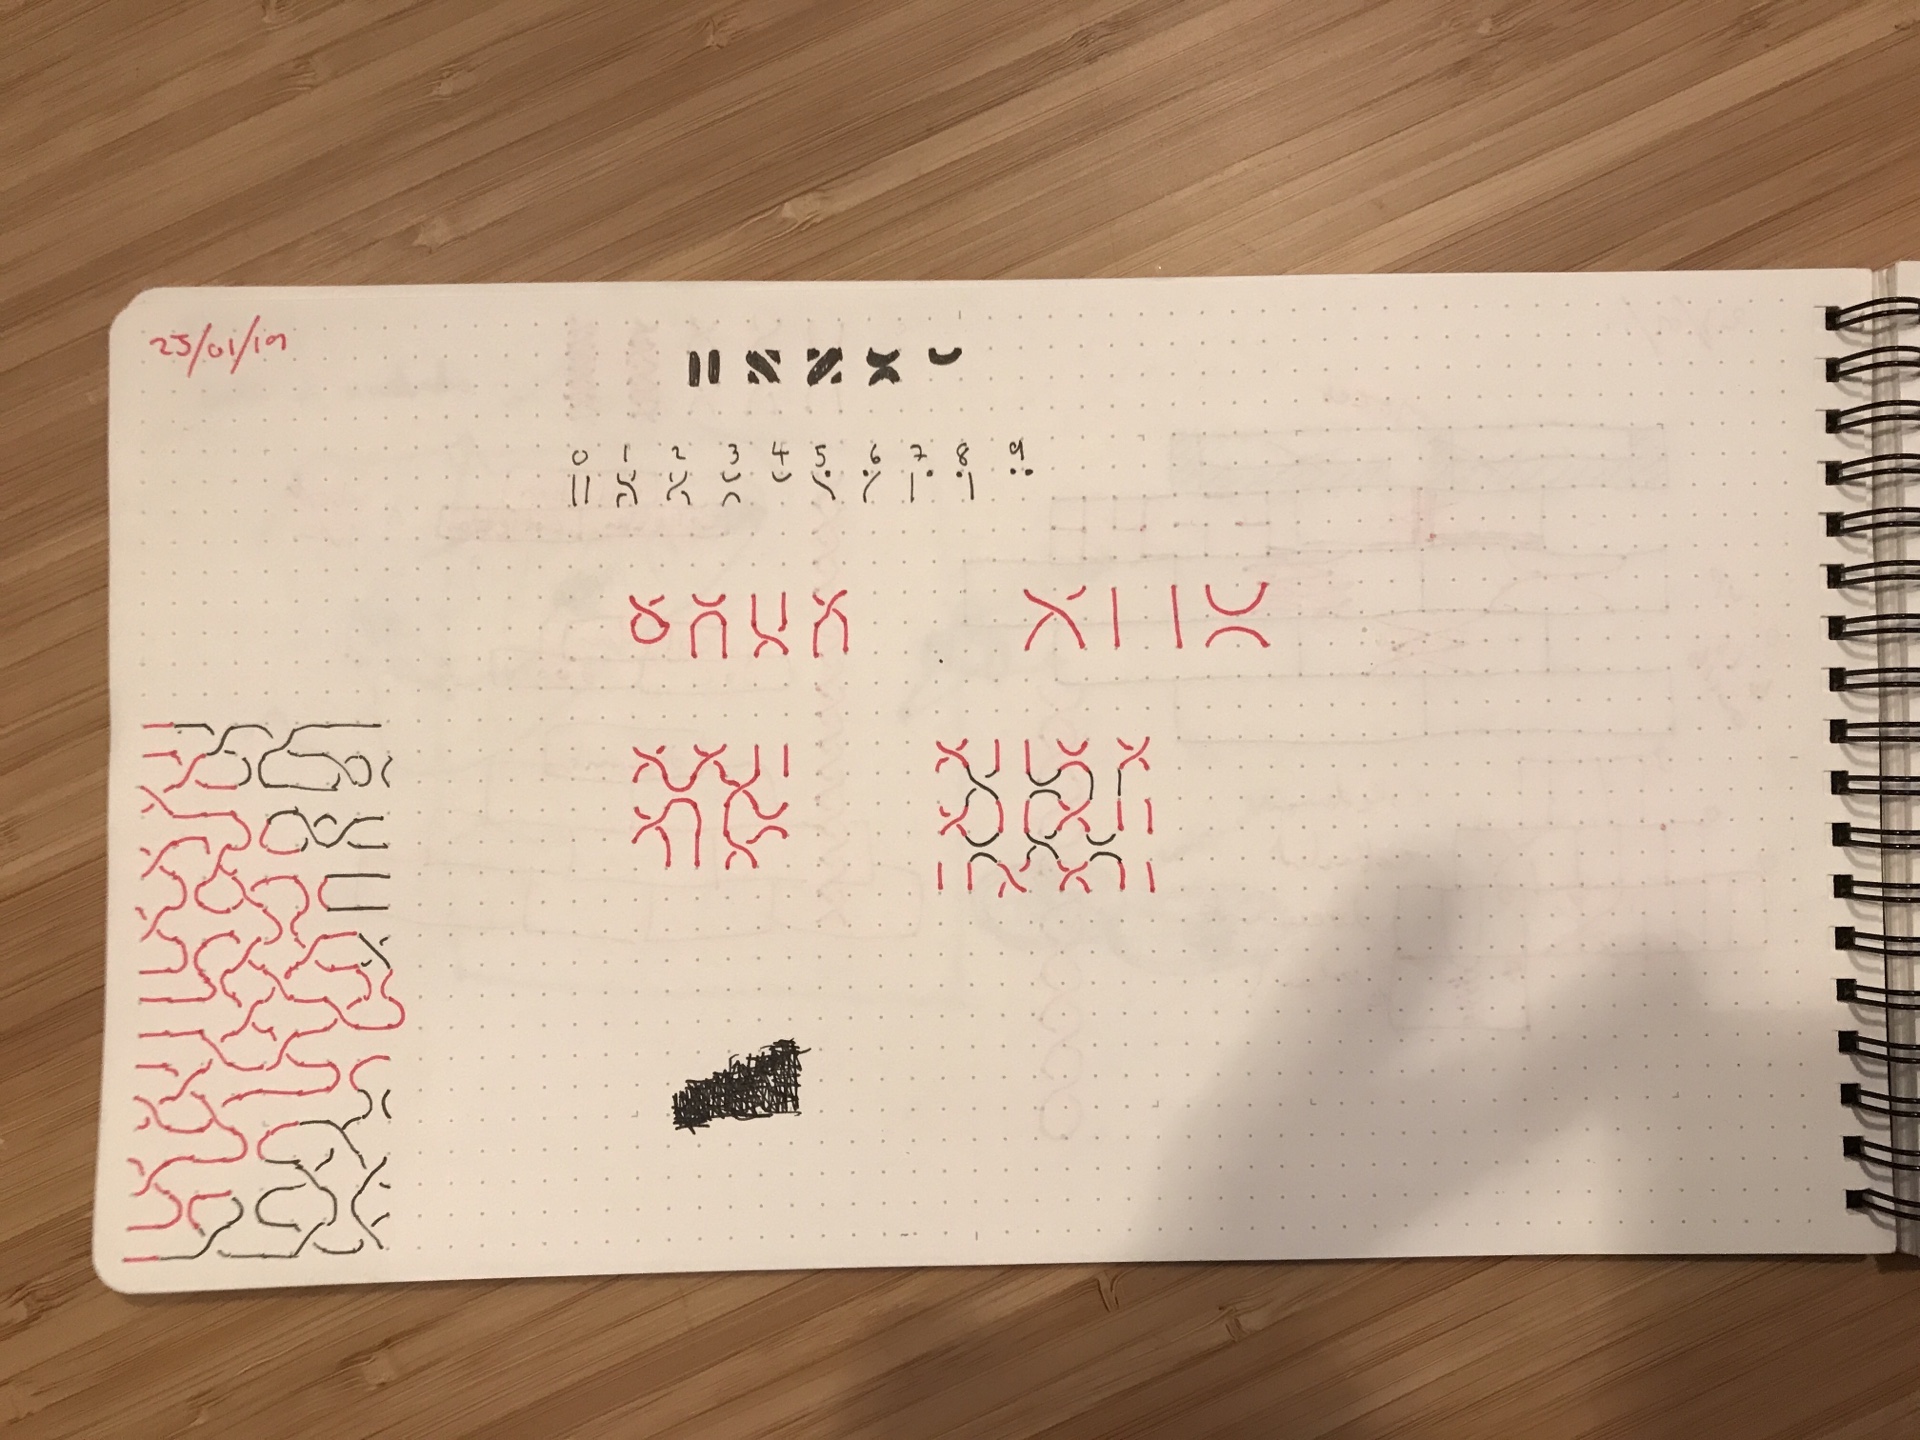 25/01/19
0 1 2 3 4 5 6 7 8 9